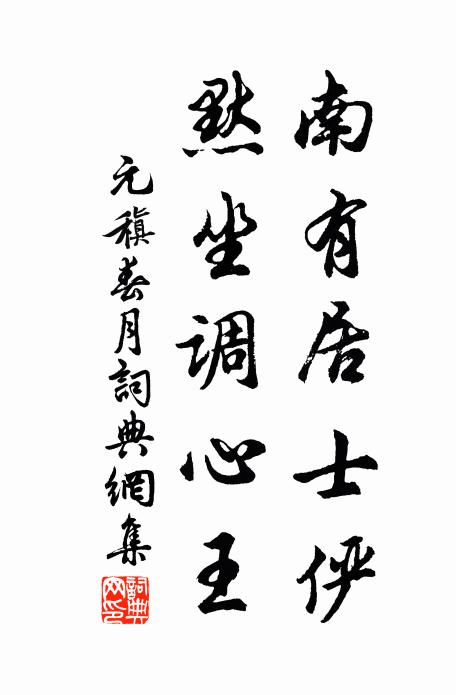 南有居士俨
默坐调心王
元稹春月詞典網集
詞典网印